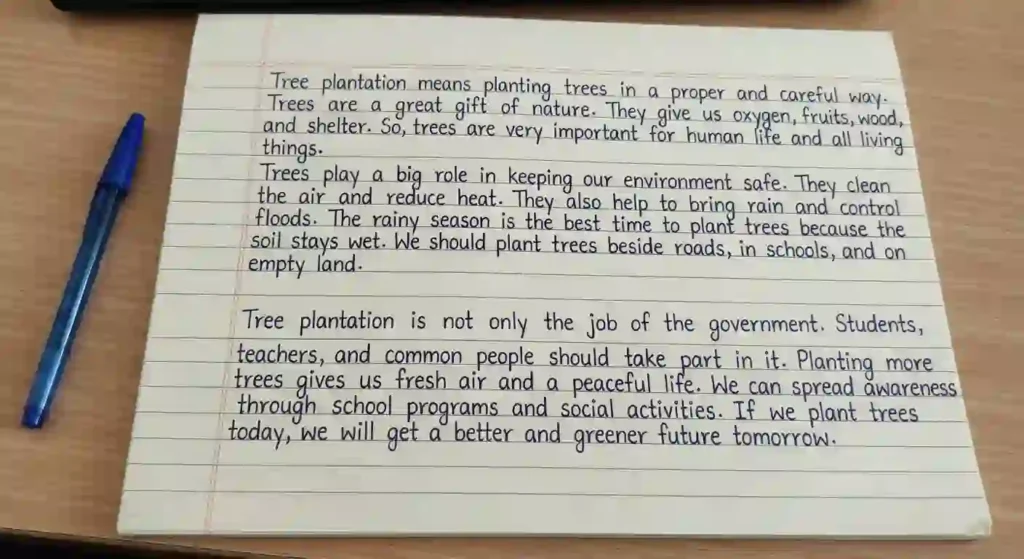 Tree plantation means planting trees in a proper and careful way.
Trees are a great gift of nature. They give us oxygen, fruits, wood,
and shelter. So, trees are very important for human life and all living
things.
Trees play a big role in keeping our environment safe. They clean
the air and reduce heat. They also help to bring rain and control
floods. The rainy season is the best time to plant trees because the
soil stays wet. We should plant trees beside roads, in schools, and on
empty land.
Tree plantation is not only the job of the government. Students,
teachers, and common people should take part in it. Planting more
trees gives us fresh air and a peaceful life. We can spread awareness
through school programs and social activities. If we plant trees
today, we will get a better and greener future tomorrow.